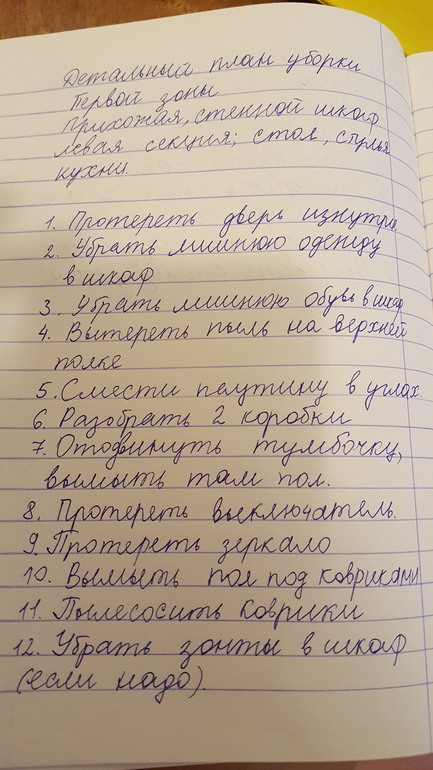 Детальный план уборки
Первой зоны
Прихожая, стенной шкаф
левая секция; стол, стулья
кухни.
1. Протереть дверь изнутри
2. Убрать лишнюю одежду
в шкаф
3. Убрать лишнюю обувь в шкаф
4. Вытереть пыль на верхней
полке
5. Смести паутину в углах.
6. Разобрать 2 коробки
7. Отодвинуть тумбочку,
вымыть там пол.
8. Протереть выключатель.
9. Протереть зеркало
10. Вымыть пол под ковриками
11. Пылесосить коврики
12. Убрать зонты в шкаф
(если надо).